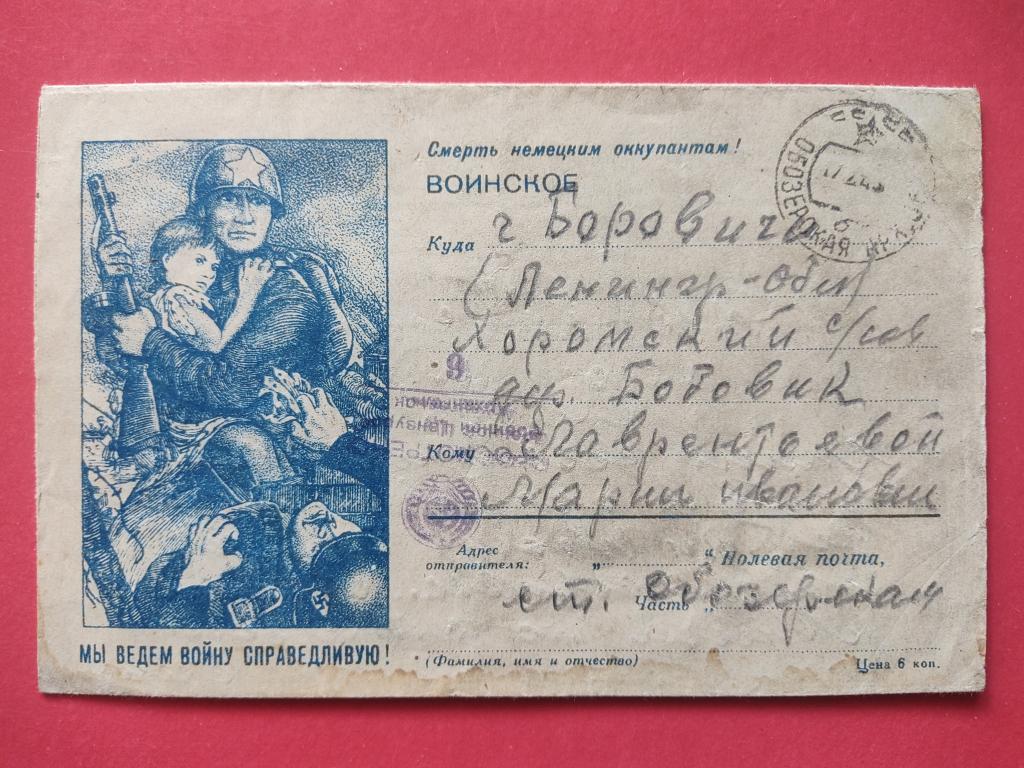 Смерть немецким оккупантам!
ВОИНСКОЕ
Куда г Боровичи
(Ленингр-Обл)
с/сов
дер. Бобовик
Кому Лаврентьевой
Марии Ивановны
Адрес отправителя: „ “ Полевая почта,
Часть „
ст. Обозерская
(Фамилия, имя и отчество)
Цена 6 коп.
МЫ ВЕДЕМ ВОЙНУ СПРАВЕДЛИВУЮ!
ОБОЗЕРСКАЯ
6
9
Военной Цензурой